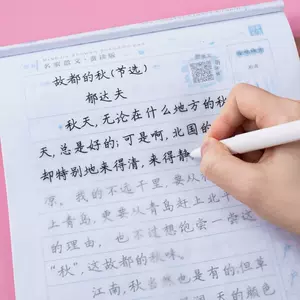 名家散文·诵读稿
故都的秋(节选)
郁达夫
秋天,无论在什么地方的秋
天,总是好的;可是啊,北国的
却特别地来得清,来得静
凉。我的不远千里,要从
上青岛,更要从青岛赶上北
的理由,也不过想饱尝一尝这
“秋”,这故都的秋味。
江南,秋当然也是有的,但草
天的颜色